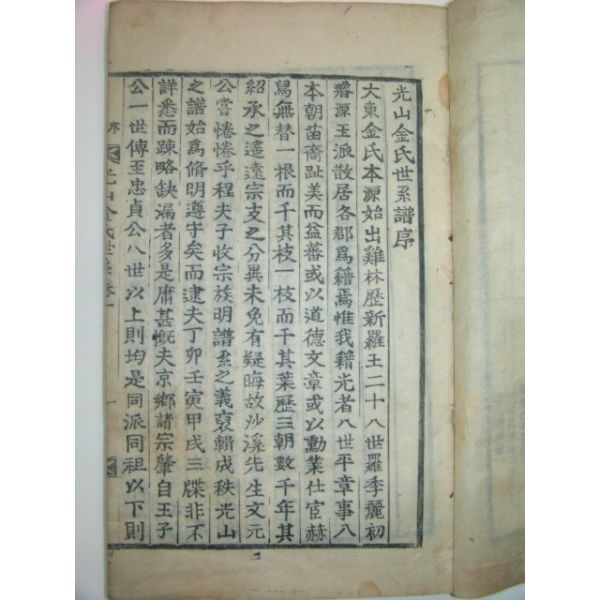 光山金氏世系譜序
大東金氏本源始出雞林歷新羅王二十八世羅季麗初
璿源玉派散居各郡爲籍焉惟我籍光者八世平章事入
本朝苗裔趾美而益蕃或以道德文章或以勳業仕宦赫
舃無替一根而千其枝一枝而千其葉歷三朝數千年其
紹承之遙遠宗支之分異未免有疑晦故沙溪先生文元
公嘗惓惓乎程夫子收宗族明譜系之義裒輯成秩光山
之譜始爲脩明遵守矣而逮夫丁卯壬寅甲戌三牒非不
詳悉而踈略缺漏者多是庸甚慨夫京鄕諸宗肇自王子
公一世傳至忠貞公八世以上則均是同派同祖以下則
序 光山金氏世系 卷一 一